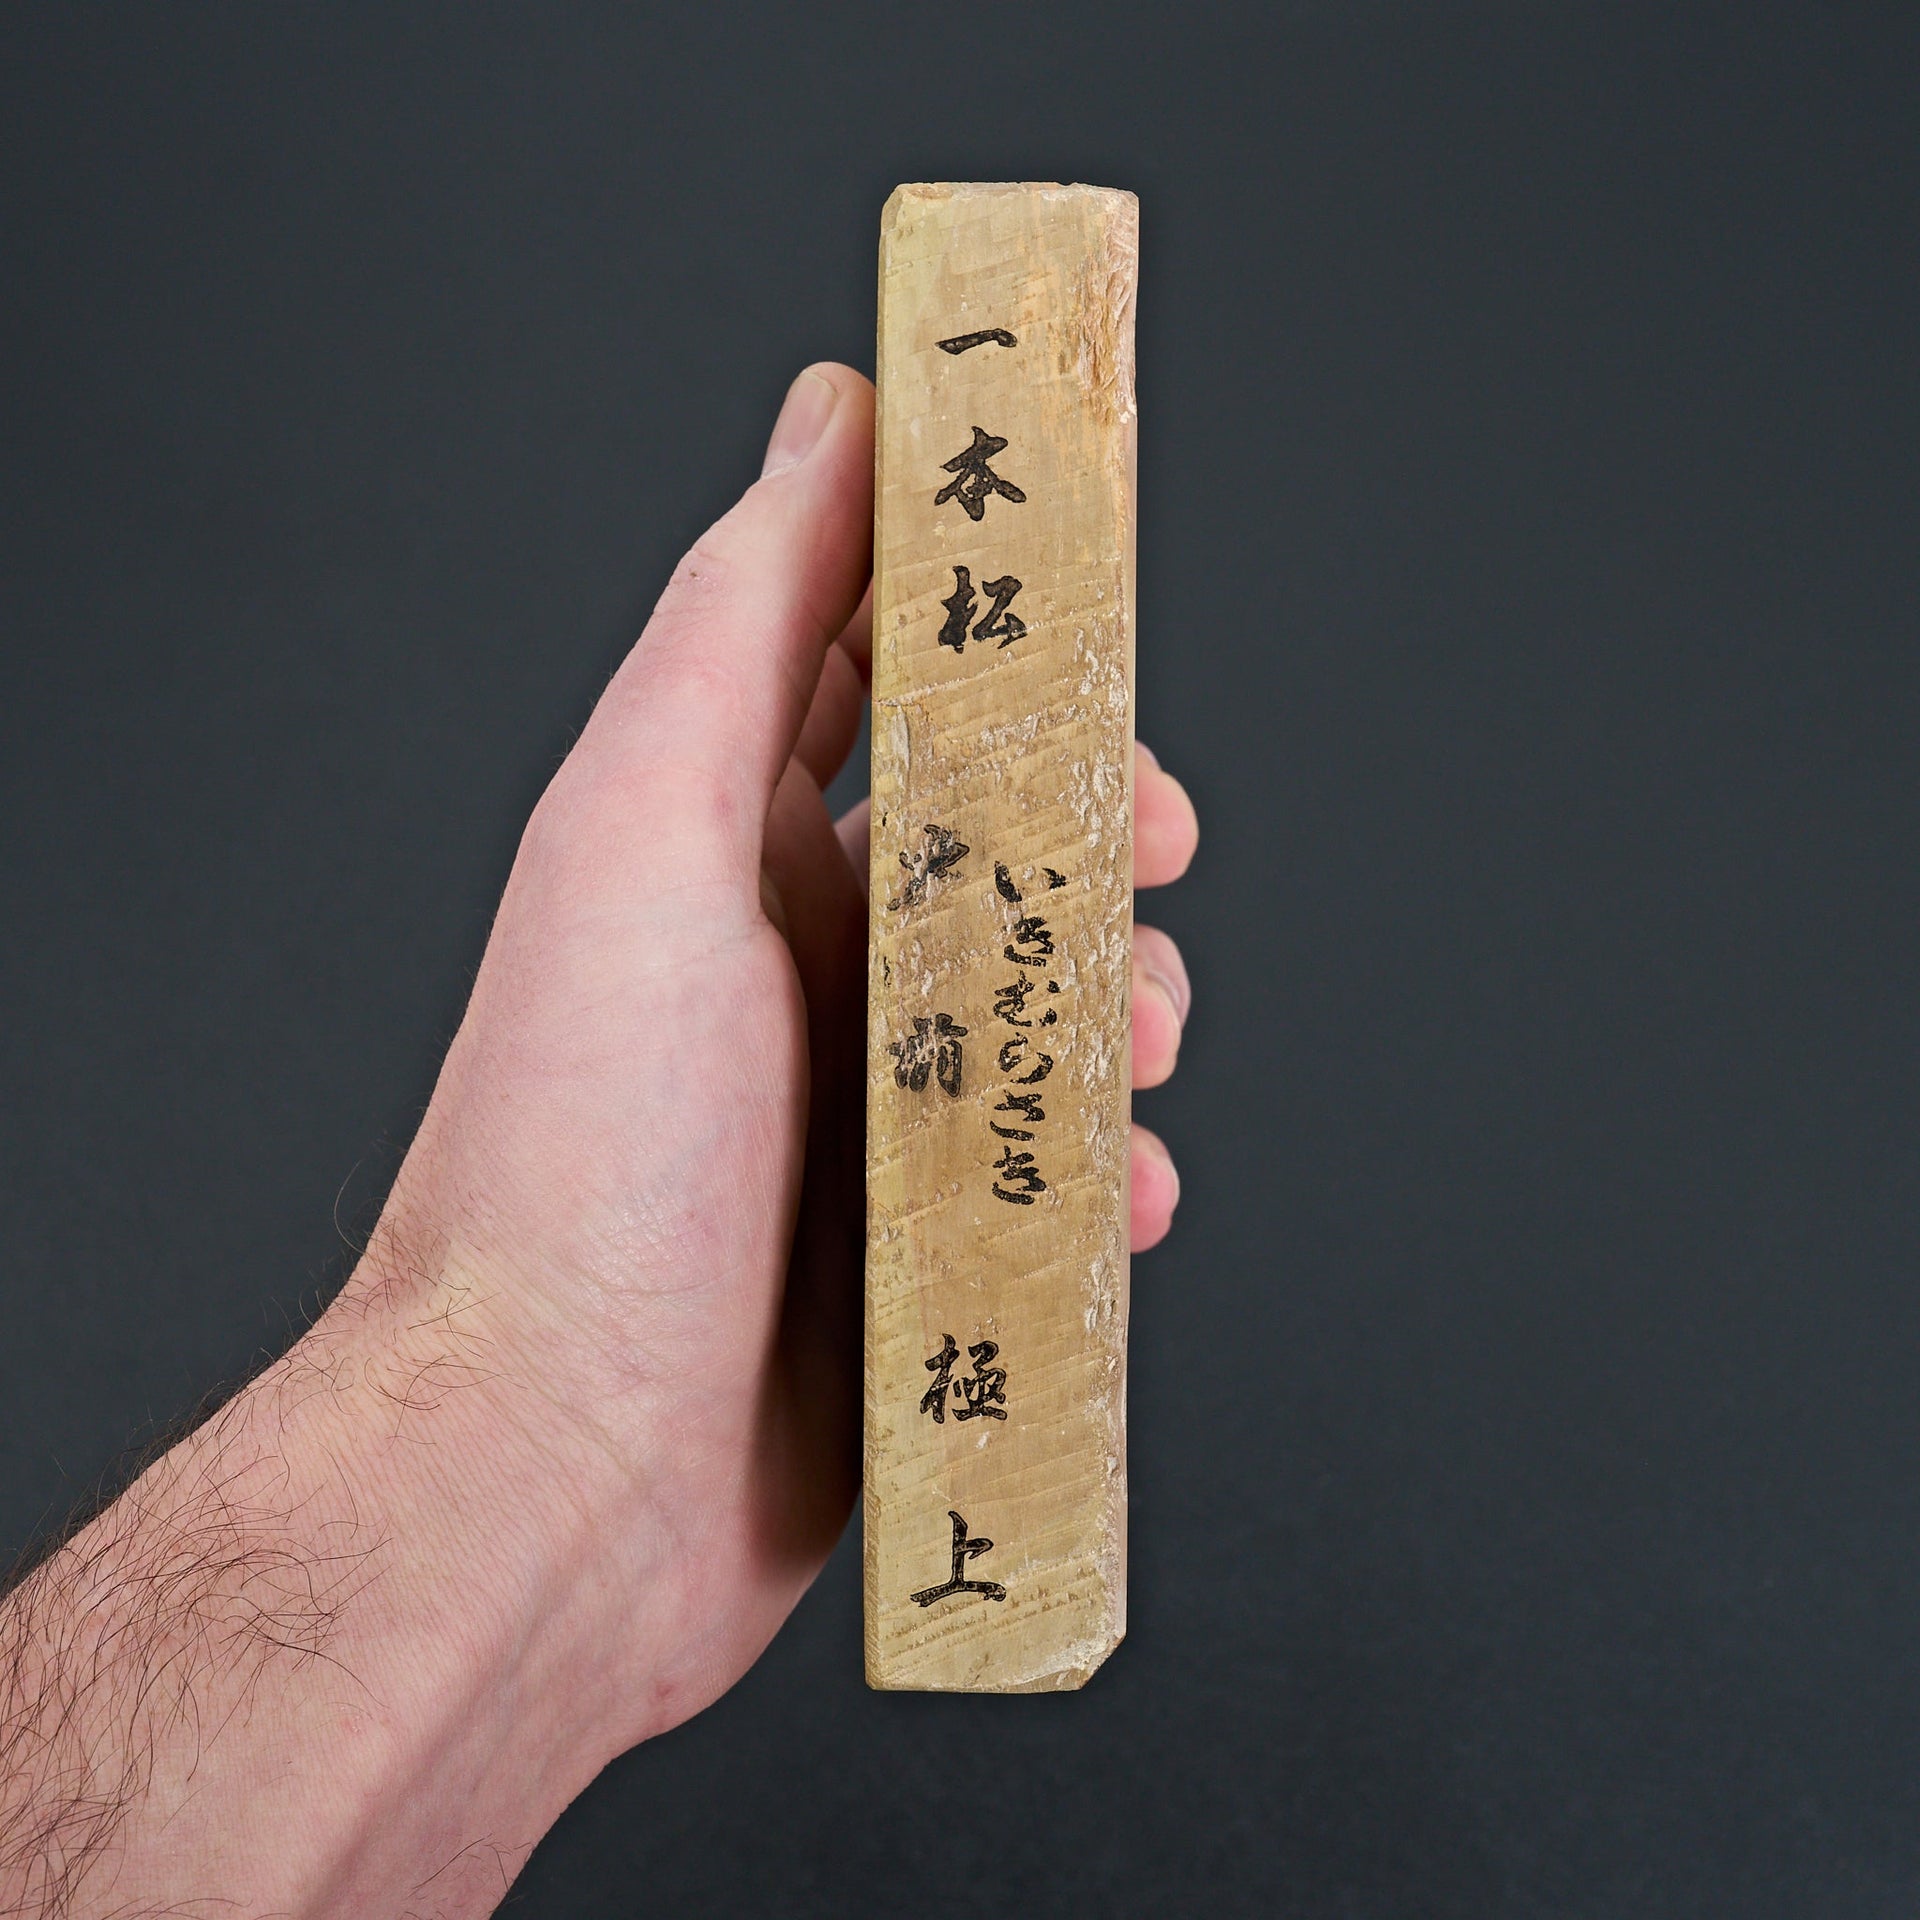 一本松
いきむらさき
極上